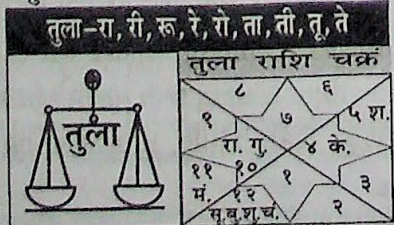 तुला-रा, री, रू, रे, रो, ता, ती, तू, ते
तुला राशि चक्रं
तुला
८ ६
९ ७ ५ श.
रा. गु. ४ के.
११ १० १ ३
मं. १२ २
सू.बु.शु.चं.